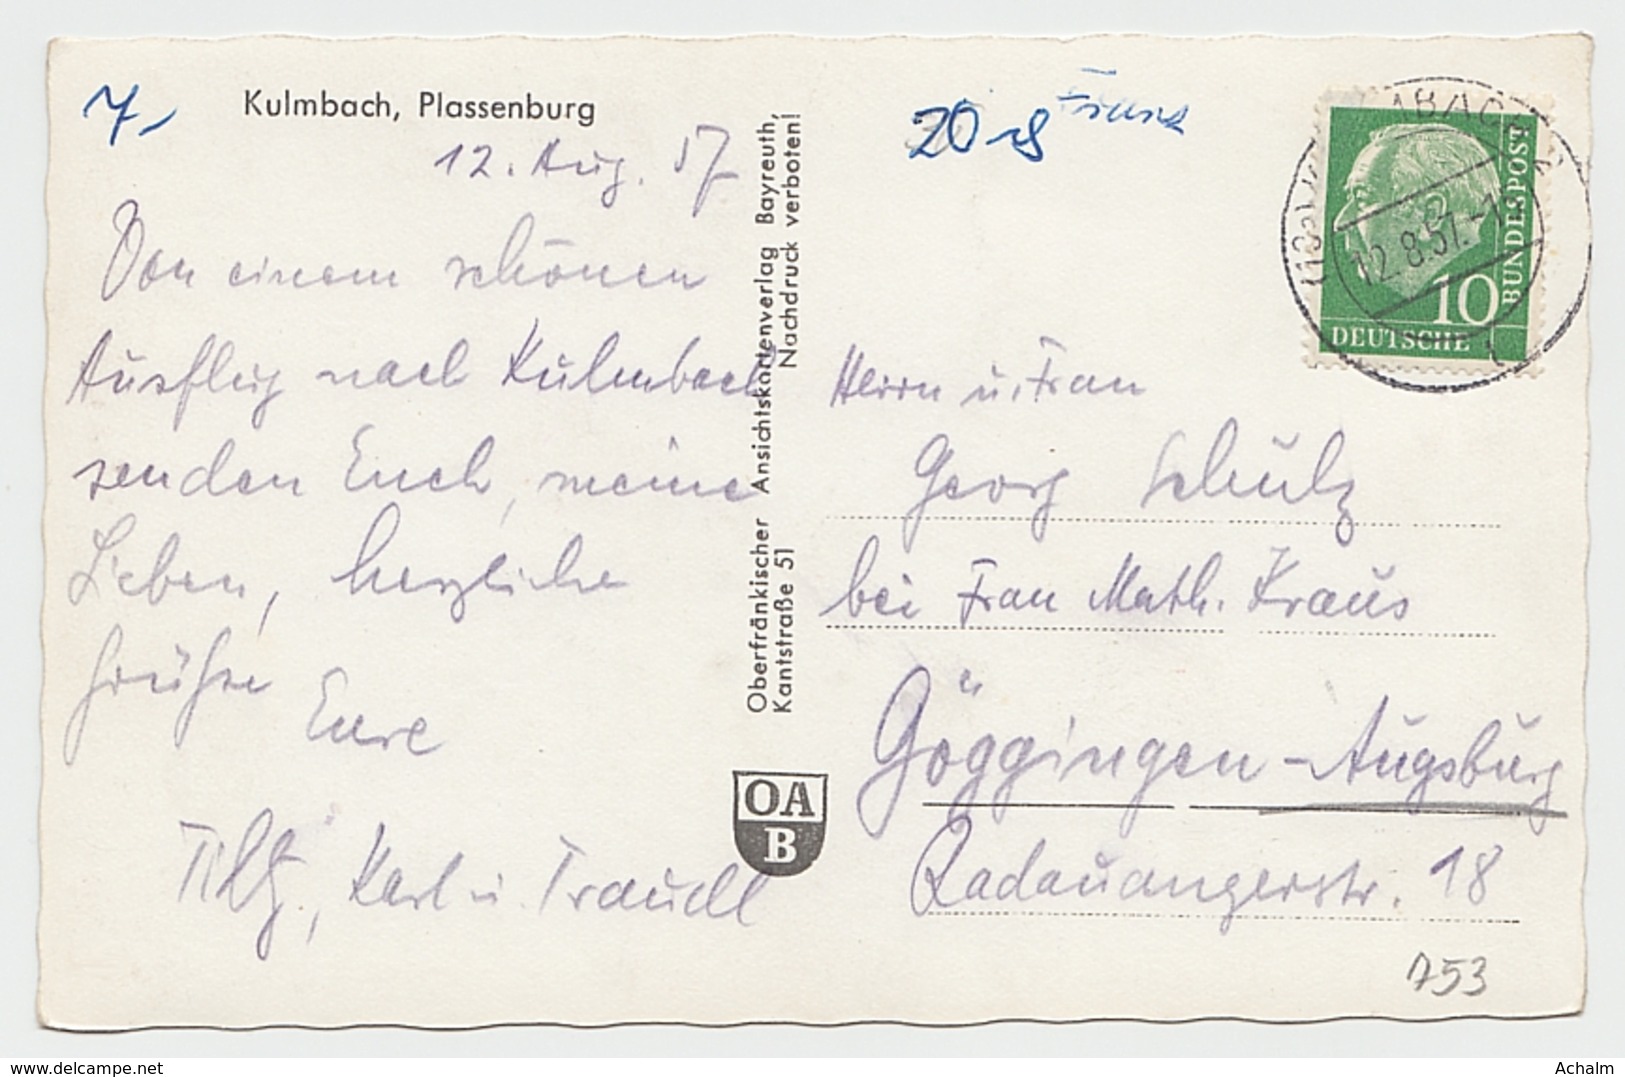 7,-
Kulmbach, Plassenburg
12. Aug. 57
Von einem schönen
Ausflug nach Kulmbach
senden Euch, meine
Lieben, herzliche
Grüße
Eure
Karl u. Traudl
Oberfränkischer Ansichtskartenverlag Bayreuth,
Kantstraße 51 Nachdruck verboten!
OA
B
20
12.8.57.
10
DEUTSCHE
BUNDESPOST
Herrn u. Frau
Georg Schulz
bei Frau Math. Kraus
Göggingen-Augsburg
Radauangerstr. 18
753
delcampe.net
Achalm